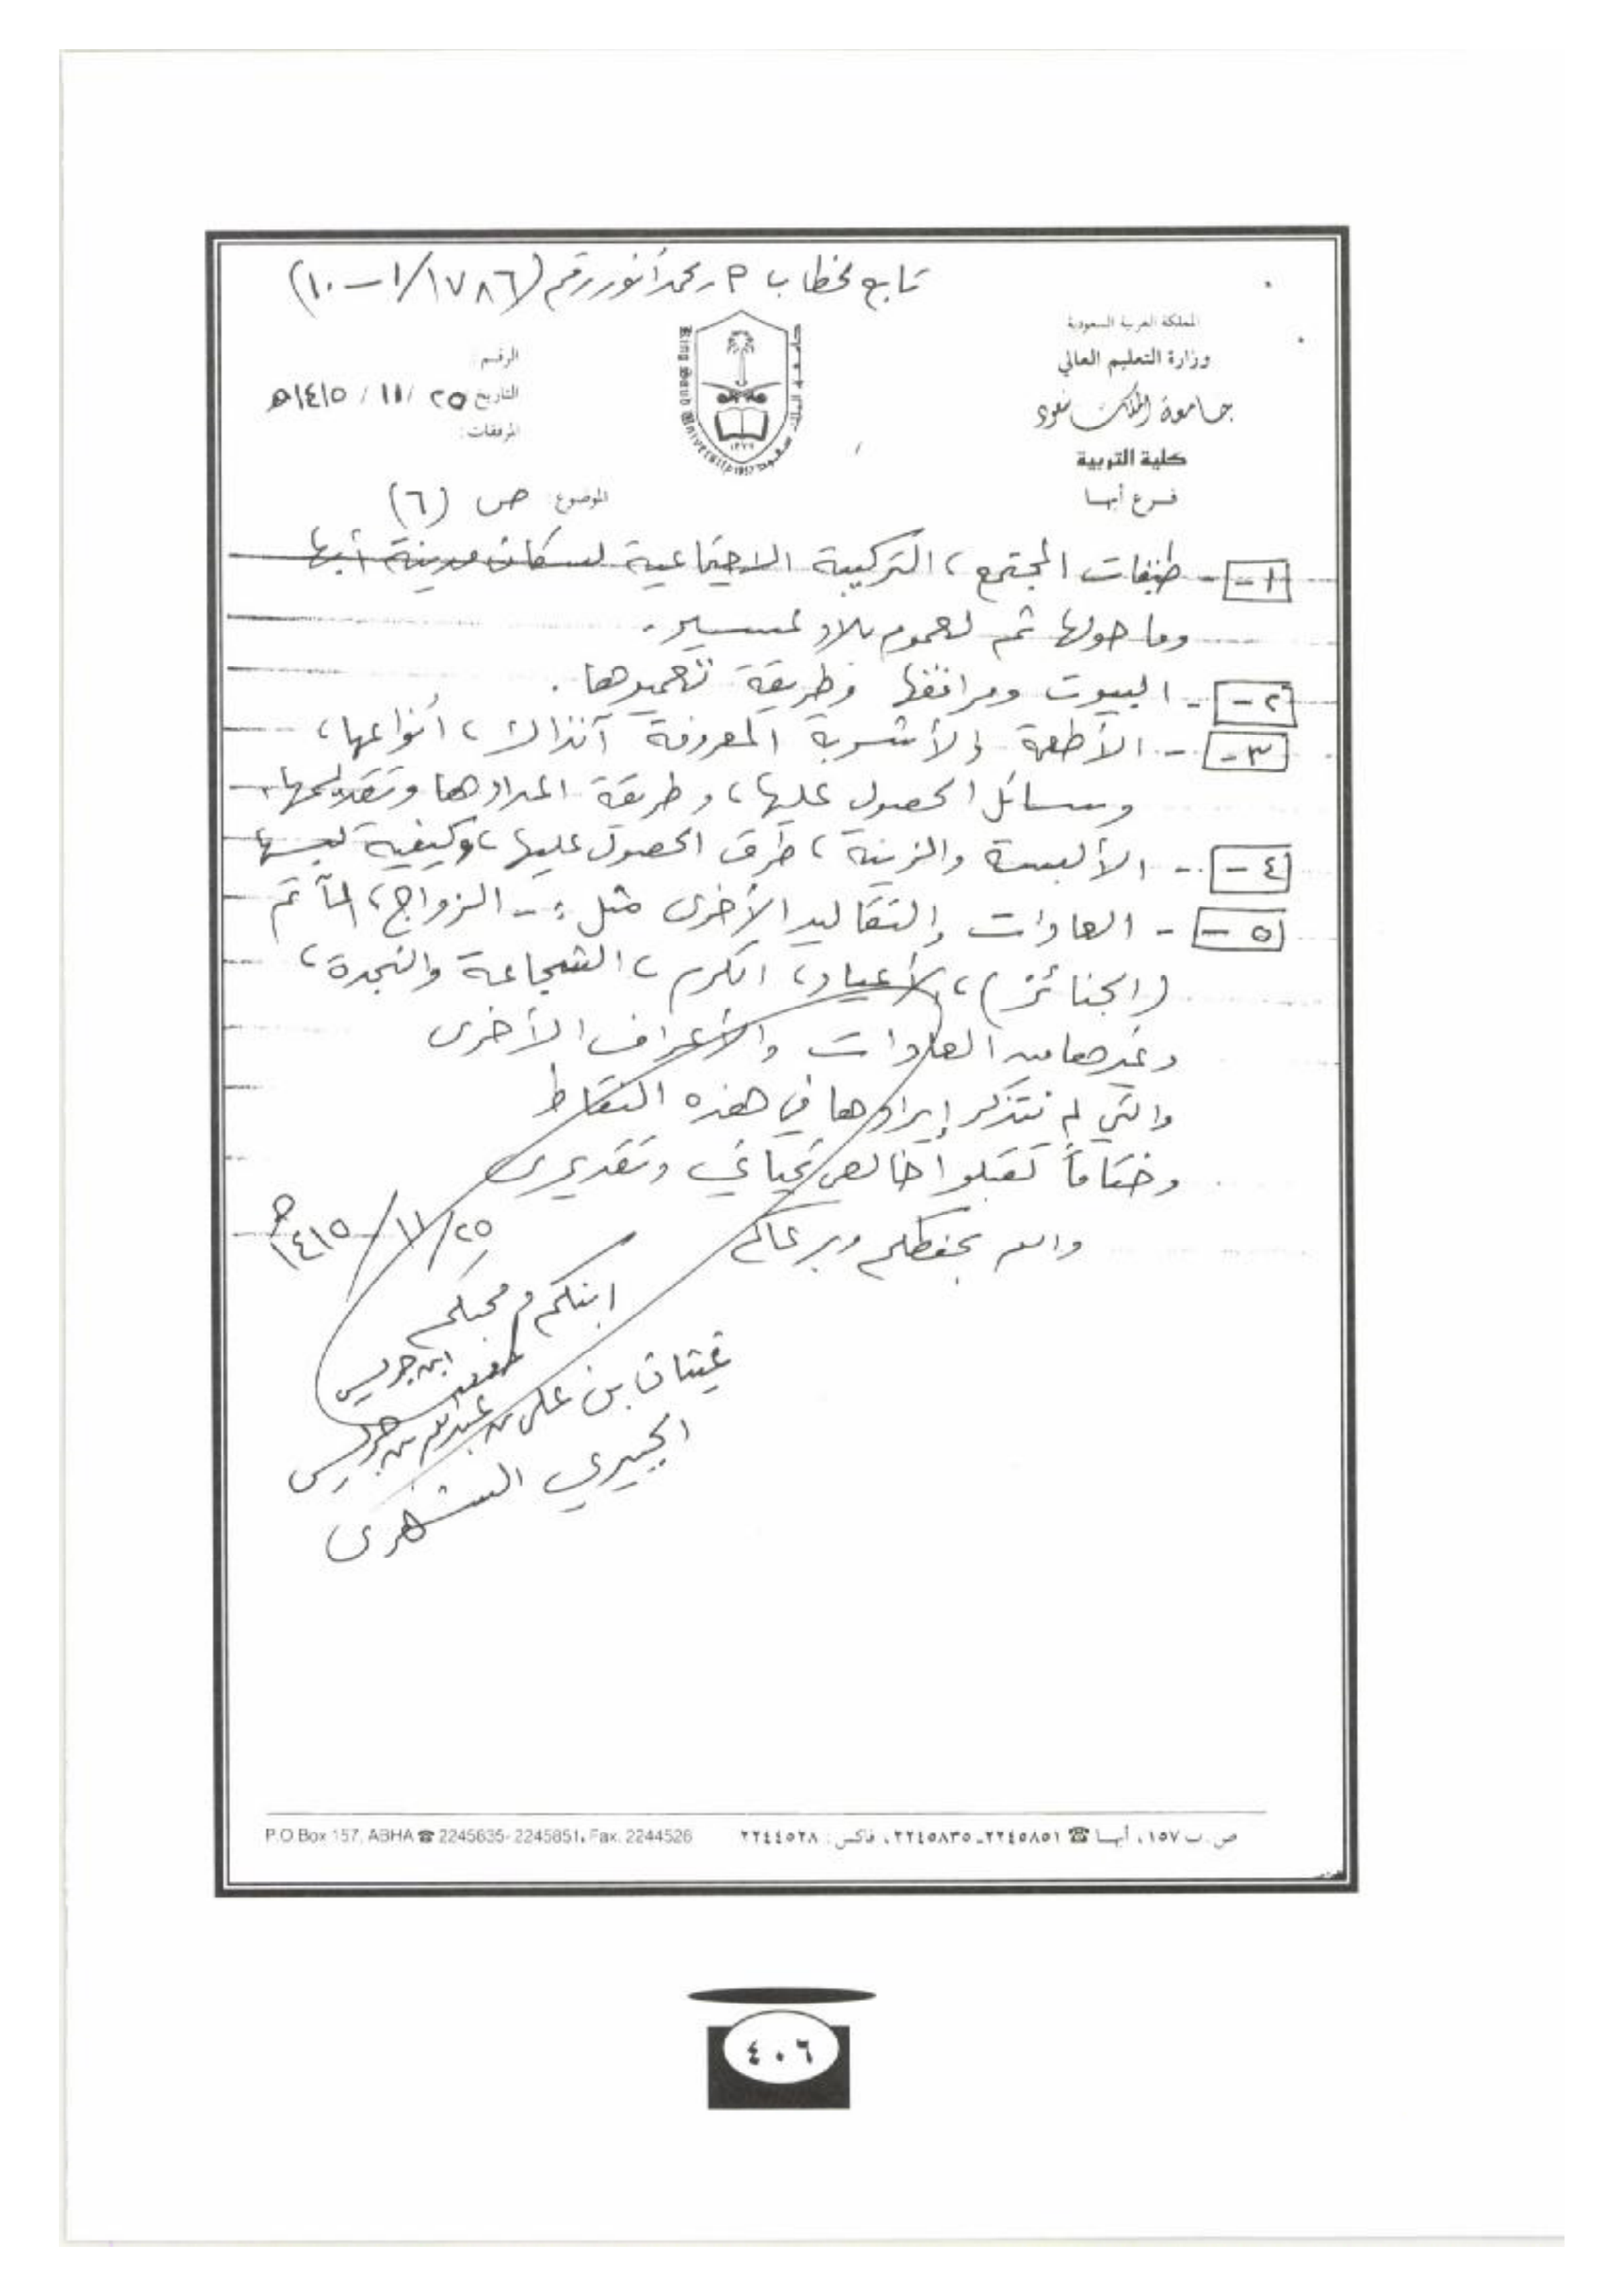 تابع لخطاب م. محمد أنور رقم (١٧٨٦/١-١٠)
المملكة العربية السعودية
وزارة التعليم العالي
جامعة الملك سعود
كلية التربية
فرع أبها
جامعة الملك سعود
King Saud University 1957
١٣٧٧
الرقم:
التاريخ ٢٥ / ١١ / ١٤١٥هـ
المرفقات:
الموضوع: ص (٦)
١- - طبقات المجتمع، التركيبة الاجتماعية لسكان مدينة أبها
وما حولها ثم لعموم بلاد عسير.
٢- - البيوت ومرافقها وطريقة تعميرها.
٣- - الأطعمة والأشربة المعروفة آنذاك، أنواعها،
وسائل الحصول عليها، وطريقة اعدادها وتقديمها.
٤- - الألبسة والزينة، طرق الحصول عليها، وكيفية لبسها
٥- - العادات والتقاليد الأخرى مثل:- الزواج، المآتم
(الجنائز)، الأعياد، الكرم، الشجاعة والنجدة،
وغيرها من العادات والأعراف الأخرى
والتي لم نتذكر إيرادها في هذه النقاط
وختاماً تقبلوا خالص تحياتي وتقديري
والله يحفظكم ويرعاكم
٢٥/١١/١٤١٥هـ
ابنكم ومحبكم
ابن جريس
غيثان بن علي بن عبدالله بن جريس
الجبيري الشهري
ص.ب ١٥٧، أبها ☎ ٢٢٤٥٨٥١ـ٢٢٤٥٨٣٥، فاكس: ٢٢٤٤٥٢٨
P.O.Box 157, ABHA ☎ 2245635-2245851, Fax. 2244526
٤٠٦